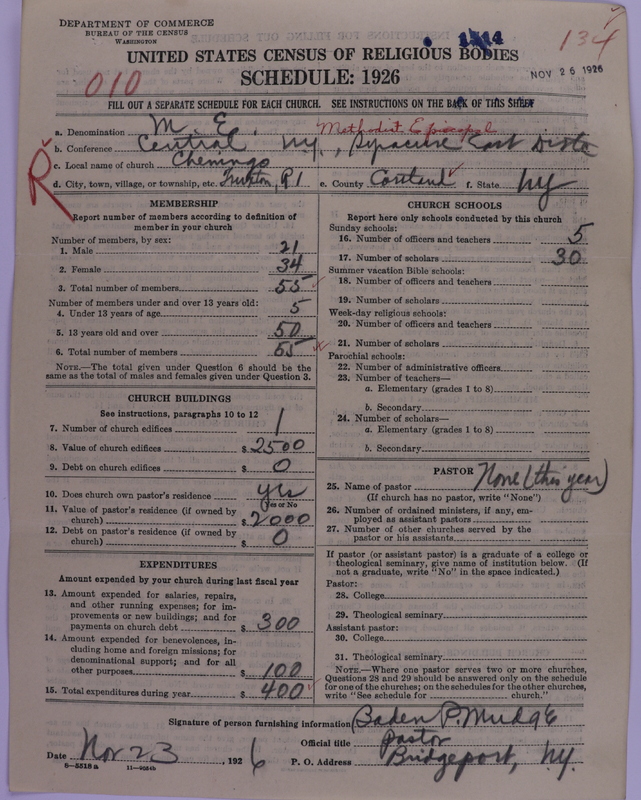 DEPARTMENT OF COMMERCE
BUREAU OF THE CENSUS
WASHINGTON
1414
134
UNITED STATES CENSUS OF RELIGIOUS BODIES
NOV 26 1926
010
SCHEDULE: 1926
FILL OUT A SEPARATE SCHEDULE FOR EACH CHURCH. SEE INSTRUCTIONS ON THE BACK OF THIS SHEET
a. Denomination M. E. Methodist Episcopal
b. Conference Central NY, Syracuse East Distr
R
c. Local name of church Cheningo
d. City, town, village, or township, etc. Truxton, R1 e. County Cortland f. State NY
MEMBERSHIP
Report number of members according to definition of member in your church
Number of members, by sex:
1. Male 21
2. Female 34
3. Total number of members 55
Number of members under and over 13 years old:
4. Under 13 years of age 5
5. 13 years old and over 50
6. Total number of members 55
NOTE.—The total given under Question 6 should be the
same as the total of males and females given under Question 3.
CHURCH BUILDINGS
See instructions, paragraphs 10 to 12
7. Number of church edifices 1
8. Value of church edifices $ 2500
9. Debt on church edifices $ 0
10. Does church own pastor's residence yes
Yes or No
11. Value of pastor's residence (if owned by
church) $ 2000
12. Debt on pastor's residence (if owned by
church) $ 0
EXPENDITURES
Amount expended by your church during last fiscal year
13. Amount expended for salaries, repairs,
and other running expenses; for im-
provements or new buildings; and for
payments on church debt $ 300
14. Amount expended for benevolences, in-
cluding home and foreign missions; for
denominational support; and for all
other purposes $ 100
15. Total expenditures during year $ 400
CHURCH SCHOOLS
Report here only schools conducted by this church
Sunday schools:
16. Number of officers and teachers 5
17. Number of scholars 30
Summer vacation Bible schools:
18. Number of officers and teachers
19. Number of scholars
Week-day religious schools:
20. Number of officers and teachers
21. Number of scholars
Parochial schools:
22. Number of administrative officers
23. Number of teachers—
a. Elementary (grades 1 to 8)
b. Secondary
24. Number of scholars—
a. Elementary (grades 1 to 8)
b. Secondary
PASTOR
25. Name of pastor None (this year)
(If church has no pastor, write "None")
26. Number of ordained ministers, if any, em-
ployed as assistant pastors
27. Number of other churches served by the
pastor or his assistants
If pastor (or assistant pastor) is a graduate of a college or
theological seminary, give name of institution below. (If
not a graduate, write "No" in the space indicated.)
Pastor:
28. College
29. Theological seminary
Assistant pastor:
30. College
31. Theological seminary
NOTE.—Where one pastor serves two or more churches,
Questions 28 and 29 should be answered only on the schedule
for one of the churches; on the schedules for the other churches,
write "See schedule for ------ church."
Signature of person furnishing information Baden P. Mudge
Official title pastor
Date Nov 23, 1926 P. O. Address Bridgeport, NY.
8-5518a 11-9564b